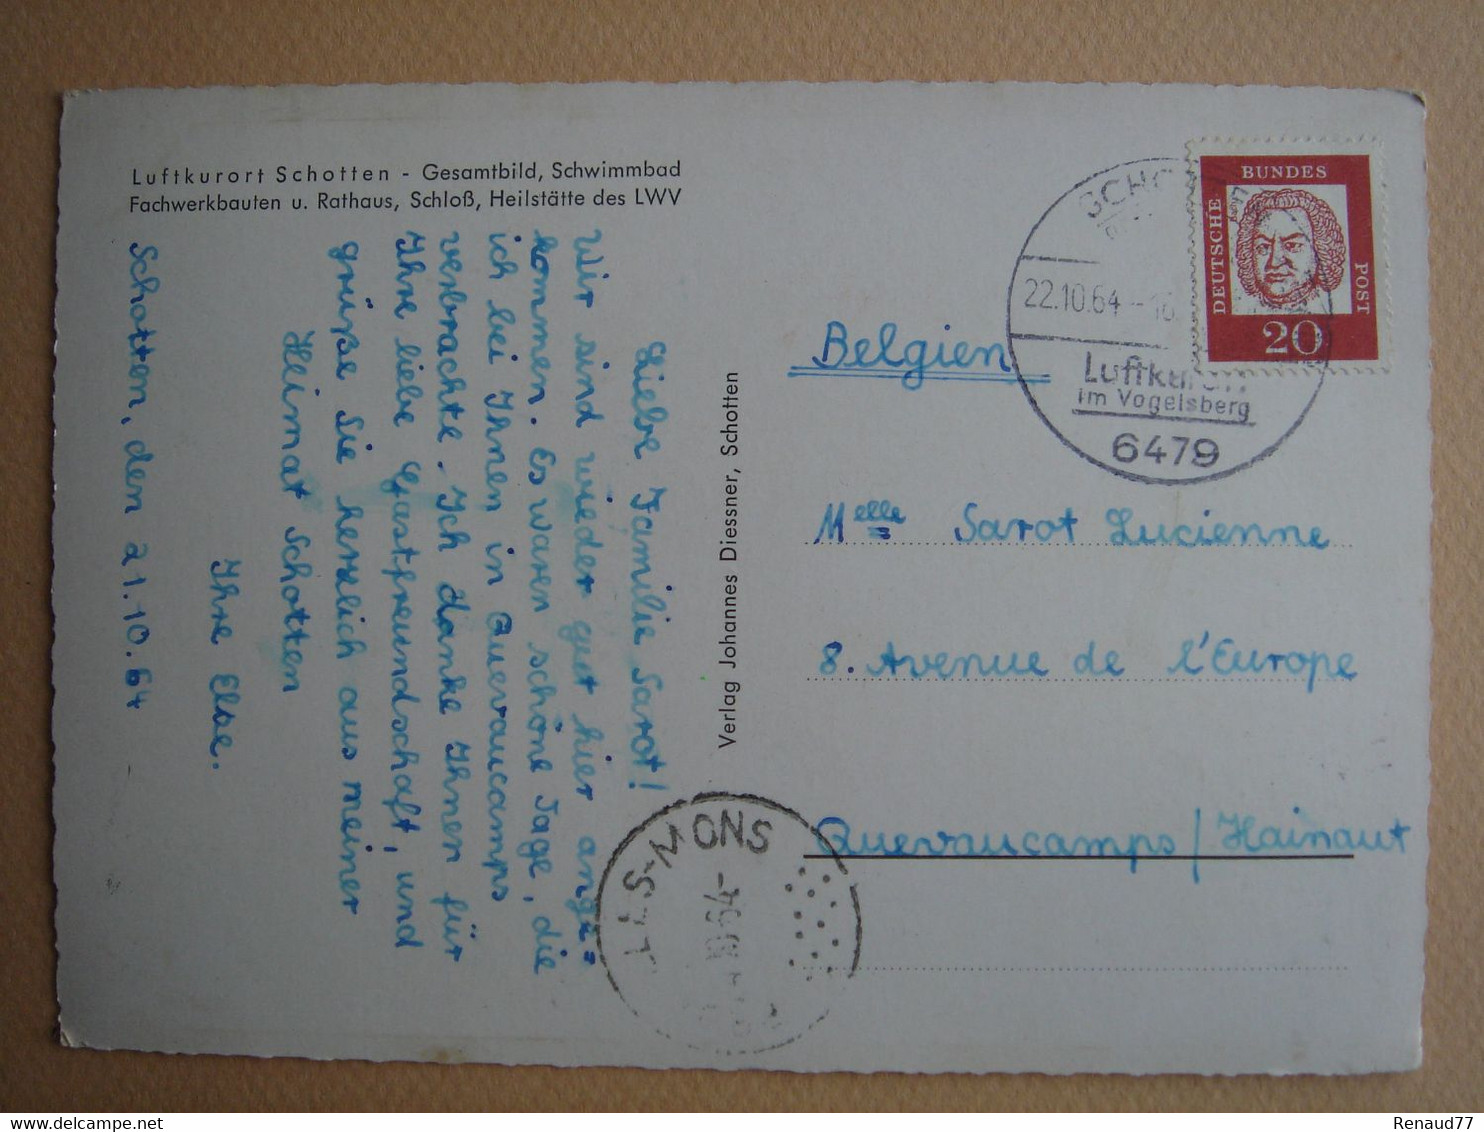 Luftkurort Schotten - Gesamtbild, Schwimmbad
Fachwerkbauten u. Rathaus, Schloß, Heilstätte des LWV
Schotten, den 21.10.64
Liebe Familie Sarot!
Wir sind wieder gut hier ange=
kommen. Es waren schöne Tage, die
ich bei Ihnen in Quevaucamps
verbrachte. Ich danke Ihnen für
Ihre liebe Gastfreundschaft, und
grüße Sie herzlich aus meiner
Heimat Schotten
Ihre Else.
Verlag Johannes Diessner, Schotten
DEUTSCHE
BUNDES
POST
20
22.10.64
Luftkurort
im Vogelsberg
6479
Belgien
Melle Sarot Lucienne
8. Avenue de l'Europe
Quevaucamps / Hainaut
MONS
Renaud77